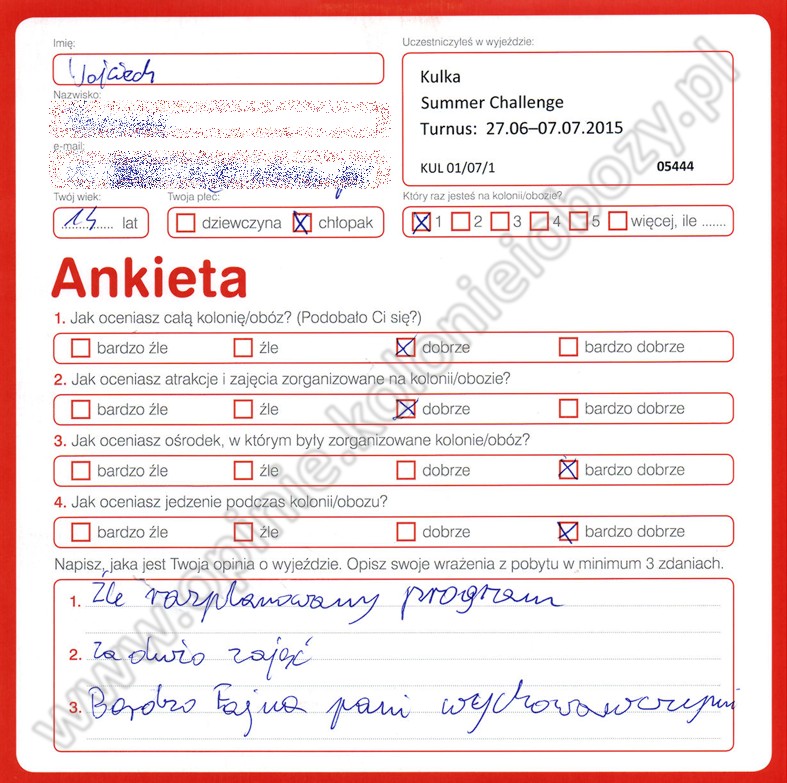 Imię:
Wojciech
Uczestniczyłeś w wyjeździe:
Kulka
Summer Challenge
Turnus: 27.06–07.07.2015
KUL 01/07/1 05444
Nazwisko:
e-mail:
Twój wiek: Twoja płeć: Który raz jesteś na kolonii/obozie?
14 lat dziewczyna chłopak 1 2 3 4 5 więcej, ile .......
Ankieta
1. Jak oceniasz całą kolonię/obóz? (Podobało Ci się?)
bardzo źle źle dobrze bardzo dobrze
2. Jak oceniasz atrakcje i zajęcia zorganizowane na kolonii/obozie?
bardzo źle źle dobrze bardzo dobrze
3. Jak oceniasz ośrodek, w którym były zorganizowane kolonie/obóz?
bardzo źle źle dobrze bardzo dobrze
4. Jak oceniasz jedzenie podczas kolonii/obozu?
bardzo źle źle dobrze bardzo dobrze
Napisz, jaka jest Twoja opinia o wyjeździe. Opisz swoje wrażenia z pobytu w minimum 3 zdaniach.
1. Źle rozplanowany program
2. Za dużo zajęć
3. Bardzo Fajna pani wychowawczyni
www.opinie.kolonieiobozy.pl